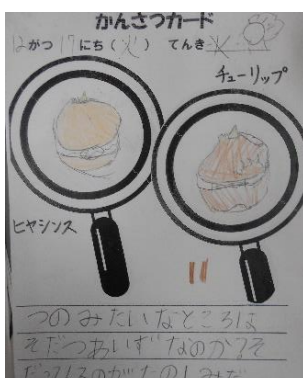 かんさつカード
12がつ17にち(火) てんき
チューリップ
ヒヤシンス
つのみたいなところは
そだつあいずなのかなそ
だっていくのがたのしみだ